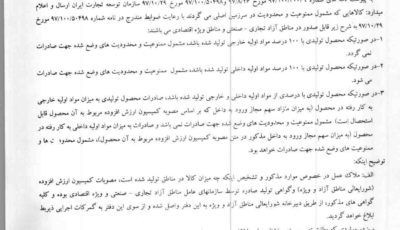 میدارد: کالاهایی که مشمول ممنوعیت و محدودیت در سرزمین اصلی می گردند با رعایت ضوابط مندرج در نامه شماره ۹۷/۱۰۰/۵۰۴۹۸ مورخ
۹۷/۱۰/۲۹ به شرح زیر قابل صدور در مناطق آزاد تجاری – صنعتی و مناطق ویژه اقتصادی می باشند:
۱-در صورتیکه محصول تولیدی با ۱۰۰ درصد مواد اولیه خارجی تولید شده باشد، مشمول ممنوعیت و محدودیت های وضع شده جهت صادرات
نمی گردد.
۲-در صورتیکه محصول تولیدی با ۱۰۰ درصد مواد اولیه داخلی تولید شده باشد، مشمول ممنوعیت و محدودیت های وضع شده جهت صادرات
می شود.
۳-در صورتیکه محصول تولیدی با درصدی از مواد اولیه داخلی و خارجی تولید شده باشد، صادرات محصول تولیدی به میزان مواد اولیه خارجی
به کار رفته در محصول (به میزان مازاد سهم مجاز ورود به داخل که بر اساس مصوبه کمیسیون ارزش افزوده مربوط به آن محصول قابل
استحصال است) مشمول ممنوعیت و محدودیت های وضع شده جهت صادرات نمی باشد و صادرات به میزان مواد اولیه داخلی به کار رفته در
محصول (به میزان سهم مجاز ورود به داخل مذکور در متن مصوبه کمیسیون ارزش افزوده مربوط به آن محصول)، مشمول ها و
ممنوعیت های وضع شده جهت صادرات خواهد بود.
توضیح اینکه:
الف: ملاک عمل در خصوص موارد مذکور و تشخیص اینکه چه میزان کالا در مناطق تولید شده است، مصوبات کمیسیون ارزش افزوده
(شورایعالی مناطق آزاد و ویژه) وگواهی تولید صادره توسط سازمانهای عامل مناطق آزاد تجاری – صنعتی و ویژه اقتصادی بوده و کلیه
گواهی های مذکور از طریق دبیرخانه شورایعالی مناطق آزاد و ویژه به این دفتر واصل شده و از سوی این دفتر به گمرکات اجرایی ذیربط
ابلاغ خواهد گردید.